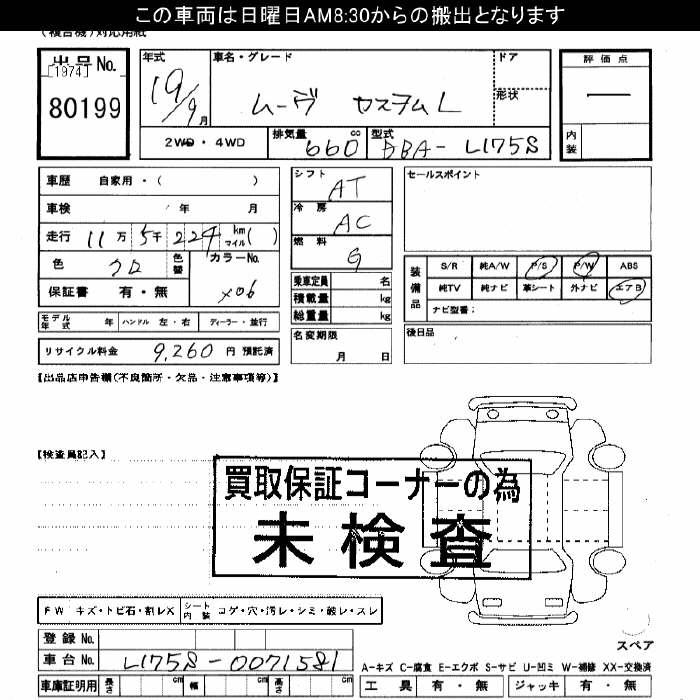 この車両は日曜日AM8:30からの搬出となります
(複合機)対応用紙
出品No.
[1974]
80199
年式
19/9月
車名・グレード
ムーヴ カスタムL
ドア
形状
2WD・4WD
排気量
660 cc
型式
DBA- L175S
評価点
―
内装
車歴 自家用・( )
車検 年 月
走行 11万5千229km マイル( )
色 クロ
色替
カラーNo.
X06
保証書 有・無
シフト AT
冷房 AC
燃料 G
乗車定員 名
積載量 kg
総重量 kg
名変期限
月 日
セールスポイント
装備品
S/R 純A/W P/S P/W ABS
純TV 純ナビ 革シート 外ナビ エアB
ナビ型番:
後日品
モデル年式 年 ハンドル 左・右 ディーラー・並行
リサイクル料金 9,260 円 預託済
【出品店申告欄(不良箇所・欠品・注意事項等)】
【検査員記入】
買取保証コーナーの為
未検査
FW キズ・トビ石・割レX
シート内装 コゲ・穴・汚レ・シミ・破レ・スレ
登録No.
車台No. L175S-0071581
車庫証明用 長さ cm 幅 cm 高さ cm
スペア
A-キズ C-腐食 E-エクボ S-サビ U-凹ミ W-補修 XX-交換済
工具 有・無 ジャッキ 有・無